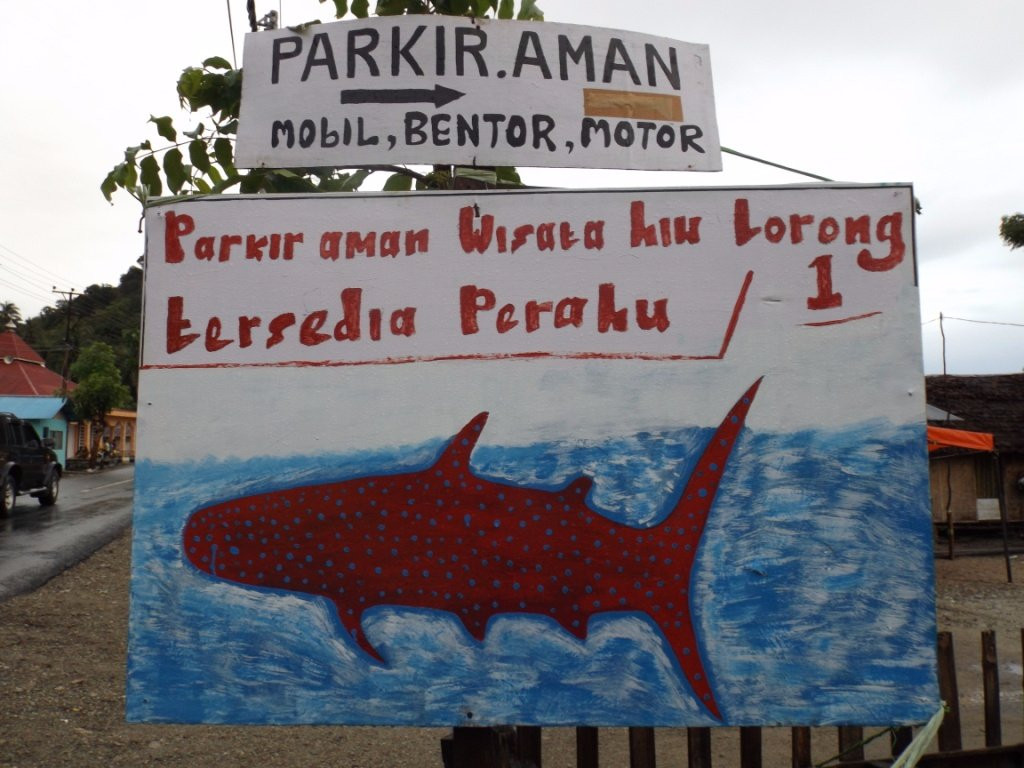 PARKIR.AMAN
MObIL, BENTOR, MOTOR
Parkir aman Wisata hiu Lorong 1
tersedia Perahu